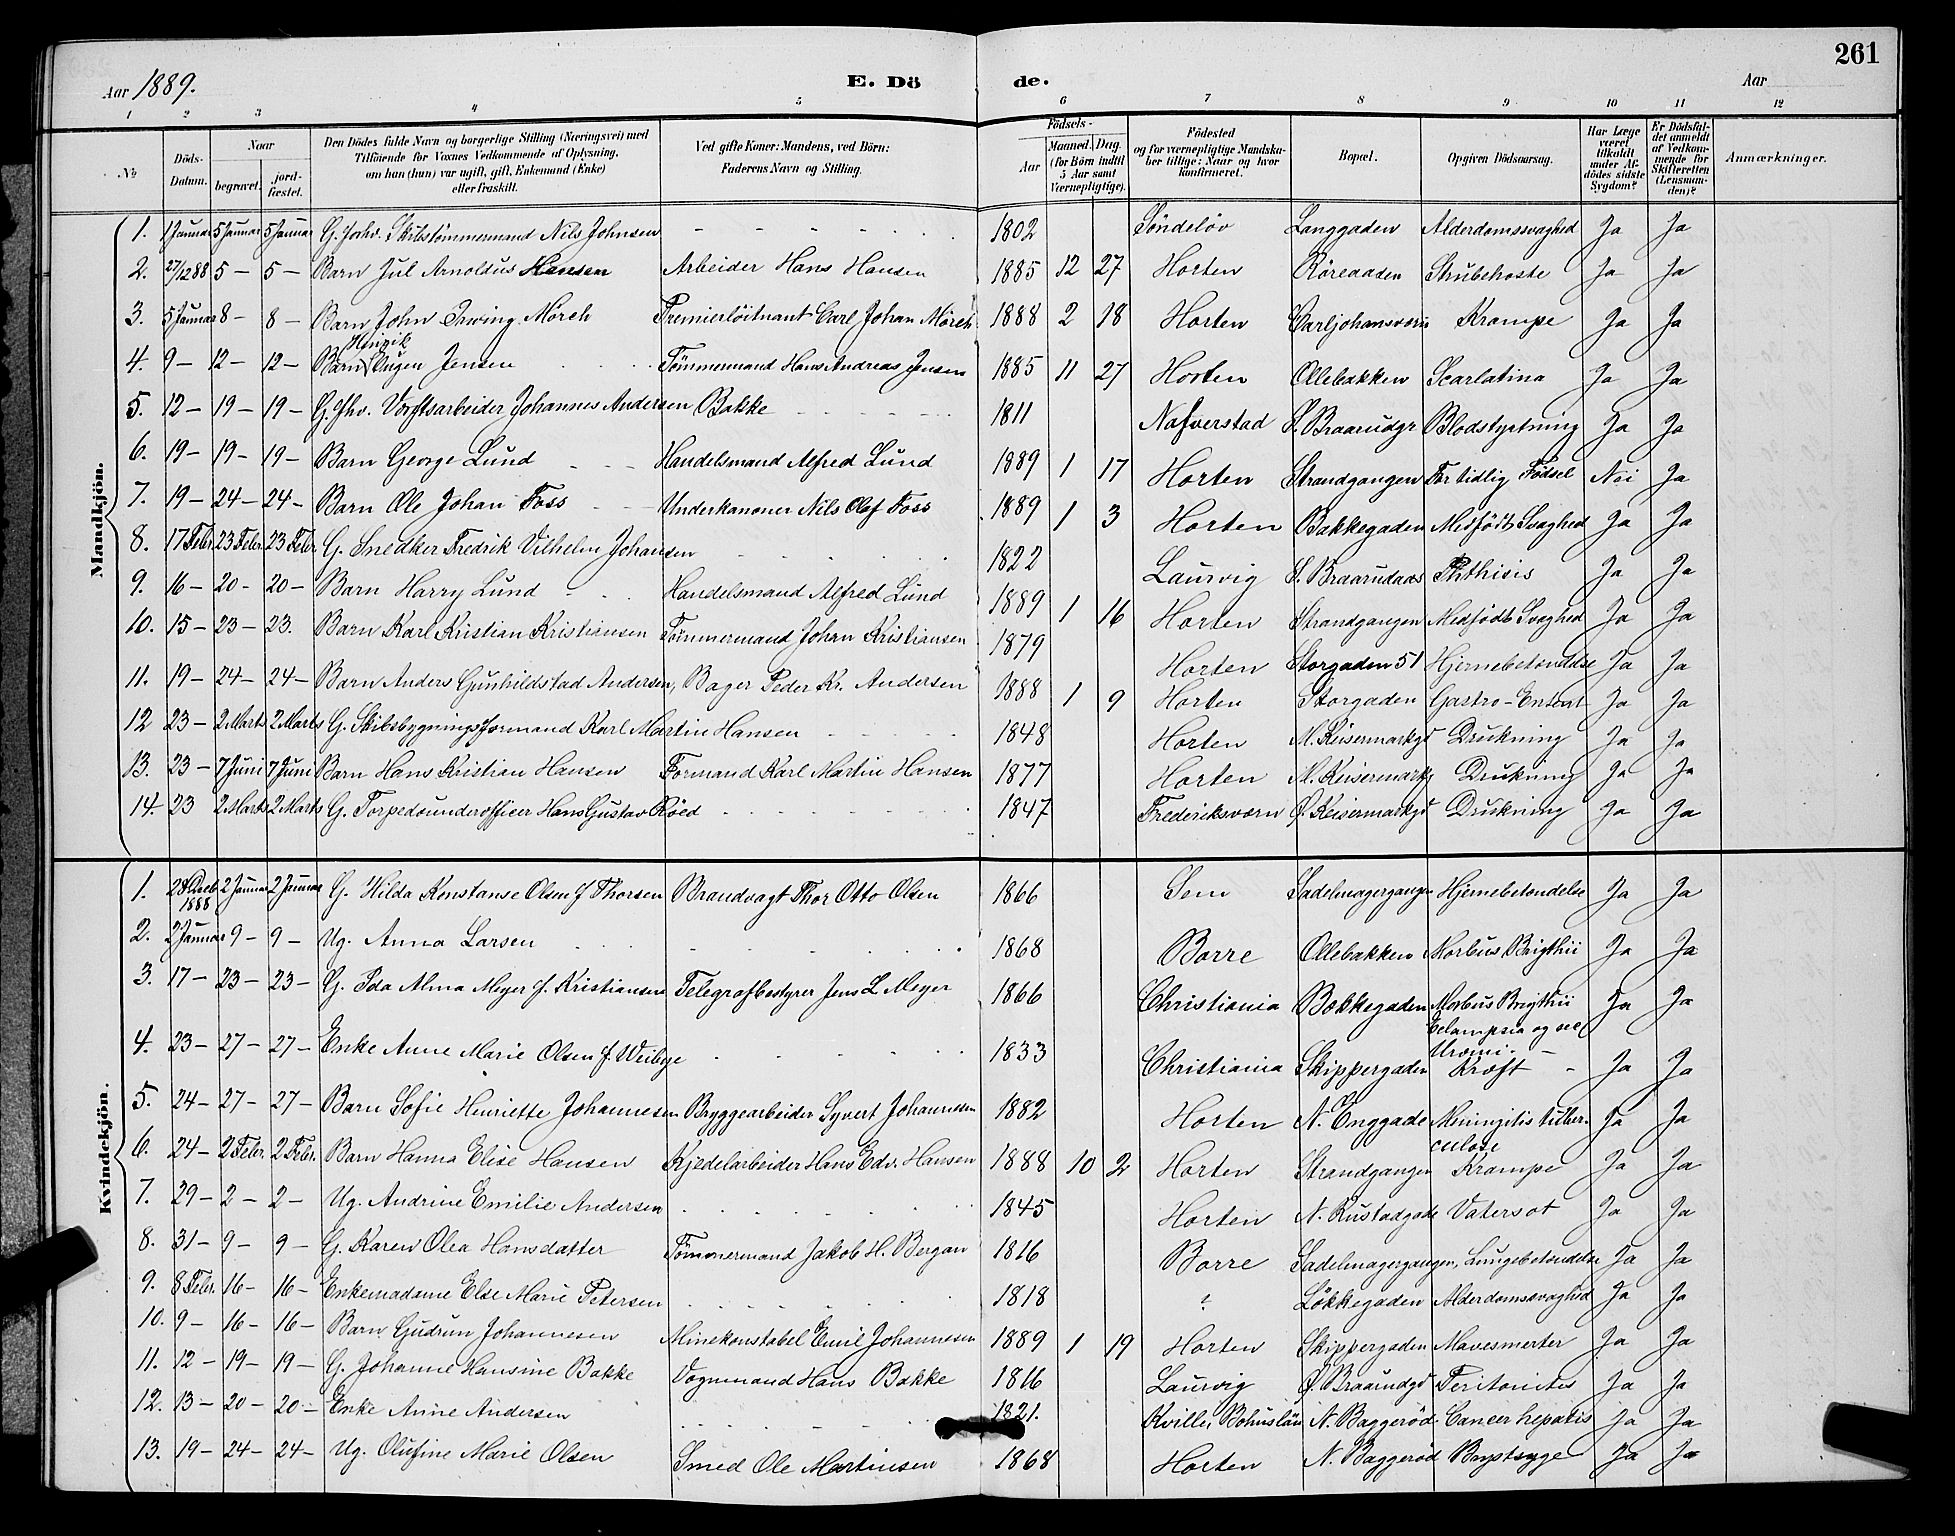 Aar 1889. E. Dö de. Aar 261
1 2 3 4 5 6 7 8 9 10 11 12
№ Döds-Datum. Naar begravet. jordfæstet. Den Dödes fulde Navn og borgerlige Stilling (Næringsvei) med Tilföiende for Voxnes Vedkommende af Oplysning, om han (hun) var ugift, gift, Enkemand (Enke) eller fraskilt. Ved gifte Koner: Mandens, ved Börn: Faderens Navn og Stilling. Födsels- Aar Maaned. Dag. (for Börn indtil 5 Aar samt Værnepligtige). Födested og for værnepligtige Mandskaber tillige: Naar og hvor konfirmeret. Bopæl. Opgiven Dödsaarsag. Har Læge været tilkaldt under Afdödes sidste Sygdom? Er Dödsfaldet anmeldt af Vedkommende for Skifteretten (Lensmanden)? Anmærkninger.
Mandkjön.
1. 1 Januar 5 Januar 5 Januar G. forhv. Skibstömmermand Nils Johnsen 1802 Söndelöv Langgaden Alderdomssvaghed Ja Ja
2. 27/12 88 5 — 5 — Barn Jul Arnoldus Hansen Arbeider Hans Hansen 1885 12 27 Horten Röregaden Strubehoste Ja Ja
3. 5 Januar 8 — 8 — Barn John Irwing Mörch Premierlöitnant Carl Johan Mörch 1888 2 18 Horten Carljohansværn Krampe Ja Ja
4. 9 — 12 — 12 — Barn Henrik Eugen Jensen Tömmermand Hans Andreas Jensen 1885 11 27 Horten Ollebakken Scarlatina Ja Ja
5. 12 — 19 — 19 — G. fhv. Værftsarbeider Johannes Andersen Bakke 1811 Nafverstad S. Braarudgr Blodstyrtning Ja Ja
6. 19 — 19 — 19 — Barn George Lund Handelsmand Alfred Lund 1889 1 17 Horten Strandgangen For tidlig Födsel Nei Ja
7. 19 — 24 — 24 — Barn Ole Johan Foss Underkanoner Nils Olaf Foss 1889 1 3 Horten Bakkegaden Medfödt Svaghed Ja Ja
8. 17 Febr. 23 Febr. 23 Febr. G. Snedker Fredrik Vilhelm Johansen 1822 Laurvig S. Braarudgds Phthisis Ja Ja
9. 16 — 20 - 20 — Barn Harry Lund Handelsmand Alfred Lund 1889 1 16 Horten Strandgangen Medfödt Svaghed Ja Ja
10. 15 — 23 — 23. Barn Karl Kristian Kristiansen Tömmermand Johan Kristiansen 1879 Horten Storgaden 51 Hjernebetændelse Ja Ja
11. 19 — 24 — 24 — Barn Anders Gunhildstad Andersen, Bager Peder Kr. Andersen 1888 1 9 Horten Storgaden Gastro-Enterit Ja Ja
12 23 — 2 Marts 2 Marts G. Skibsbygningsformand Karl Martin Hansen 1848 Horten M. Keisermarkgd Drukning Ja Ja
13. 23 — 7 Juni 7 Juni Barn Hans Kristian Hansen Formand Karl Martin Hansen 1877 Horten M. Keisermarkg Drukning Ja Ja
14. 23 2 Marts 2 Marts G. Torpedounderofficer Hans Gustav Röed 1847 Frederiksværn Ö. Keisermarkgd Drukning Ja Ja
Kvindekjön.
1. 28 Decb 1888 2 Januar 2 Januar G. Hilda Konstanse Olsen f Thorsen Brandvagt Thor Otto Olsen 1866 Sem Sadelmagergangen Hjernebetændelse Ja Ja
2. 2 Januar 9 — 9 — Ug. Anna Larsen 1868 Borre Ollebakken Morbus Brigthii Ja Ja
3. 17 — 23 — 23 — G. Ida Alma Meyer f. Kristiansen Telegrafbestyrer Jens L Meyer 1866 Christiania Bakkegaden Morbus Brigthii Eclampsia og Uræmi. Ja Ja
4. 23 — 27 — 27 — Enke Anne Marie Olsen f. Weibye 1833 Christiania Skippergaden Kræft Ja Ja
5. 24 — 27 — 27 — Barn Sofie Henriette Johannesen Bryggearbeider Syvert Johannesen 1882 Horten N. Enggade Meningitis tuberculose Ja Ja
6. 24 — 2 Febr. 2 Febr. Barn Hanna Elise Hansen Kjedelarbeider Hans Edv. Hansen 1888 10 2 Horten Strandgangen Krampe Ja Ja
7. 29 — 2 — 2 — Ug. Andrine Emilie Andersen 1845 Horten N. Rustadgade Vatersot Ja Ja
8. 31 — 9 — 9 — G. Karen Olea Hansdatter Tömmermand Jakob H. Bergan 1816 Borre Sadelmagergangen, Lungebetændelse Ja Ja
9. 8 Febr. 16 — 16 — Enkemadame Else Marie Petersen 1818 ? Lökkegaden Alderdomssvaghed Ja Ja
10. 9 — 16 — 16 — Barn Gudrun Johannesen Minekonstabel Emil Johannesen 1889 1 19 Horten Skippergaden Mavesmerter Ja Ja
11. 12 — 19 — 19 — G. Johanne Hansine Bakke Vognmand Hans Bakke 1816 Laurvig Ö. Braarudgd Peritonites Ja Ja
12. 13 — 20 — 20 — Enke Anne Andersen 1821. Kville, Bohuslän N. Baggeröd Cancer hepatis Ja Ja
13. 19 — 24 — 24 — Ug. Olufine Marie Olsen Smed Ole Martinsen 1868 Horten N. Baggeröd Brystsyge Ja Ja